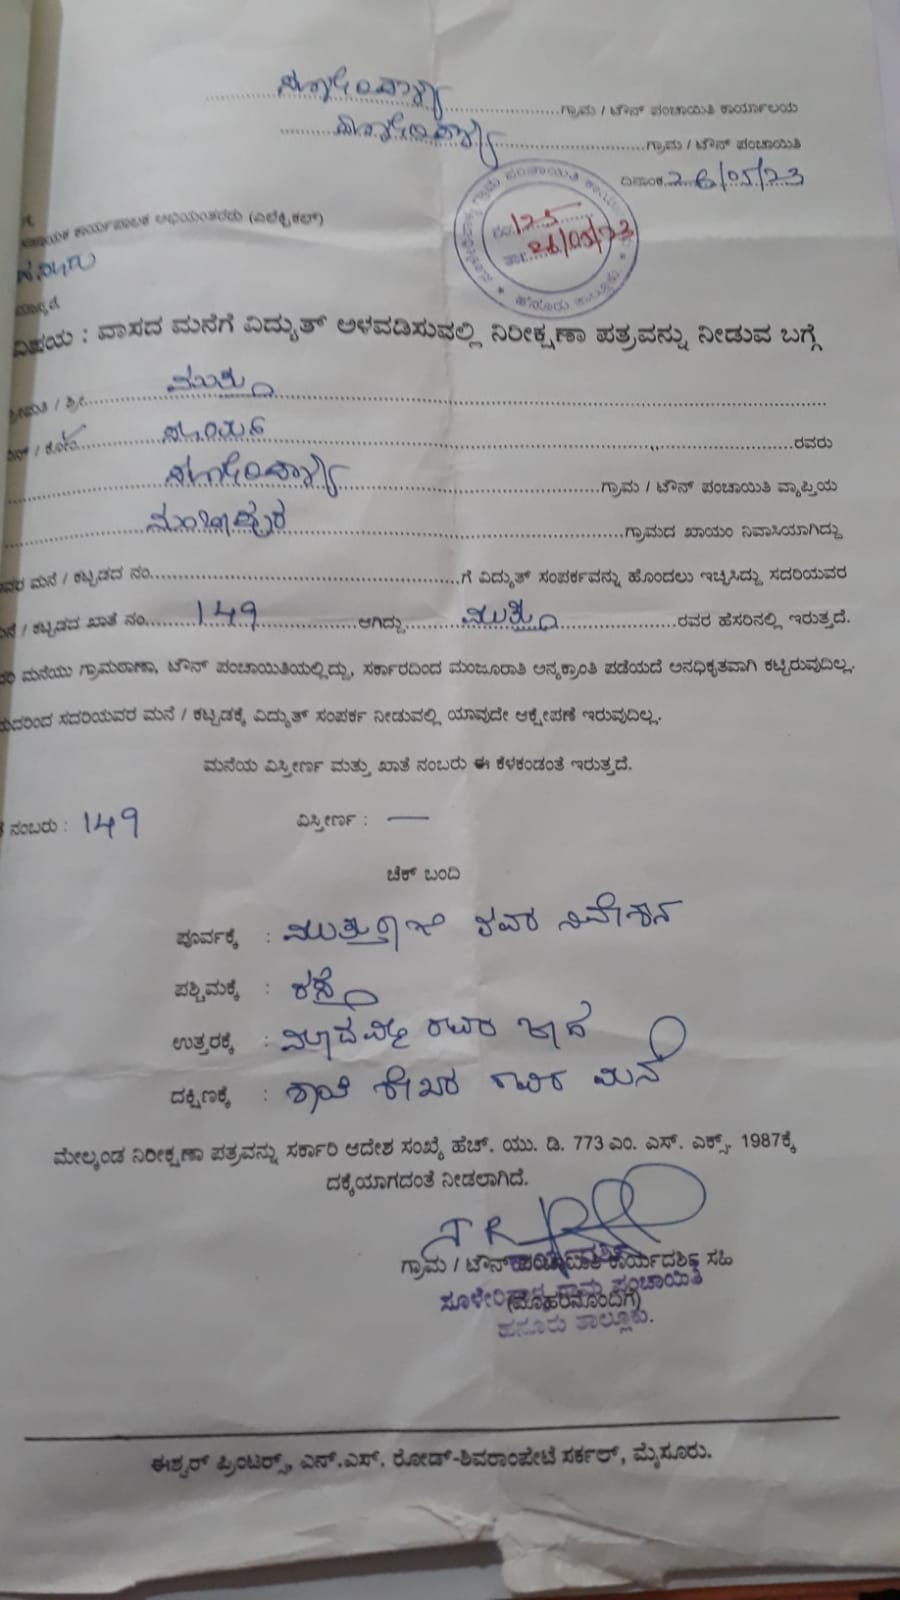 ಸೂಳೇರಿಪಾಳ್ಯ ಗ್ರಾಮ / ಟೌನ್ ಪಂಚಾಯಿತಿ ಕಾರ್ಯಾಲಯ
ಸೂಳೇರಿಪಾಳ್ಯ ಗ್ರಾಮ / ಟೌನ್ ಪಂಚಾಯಿತಿ
ದಿನಾಂಕ 26/05/23
ನಂ. 125
ತಾ. 26/05/23
ಕಾರ್ಯಪಾಲಕ ಅಭಿಯಂತರರು (ಎಲೆಕ್ಟ್ರಿಕಲ್)
ಹನೂರು
ವಿಷಯ : ವಾಸದ ಮನೆಗೆ ವಿದ್ಯುತ್ ಅಳವಡಿಸುವಲ್ಲಿ ನಿರೀಕ್ಷಣಾ ಪತ್ರವನ್ನು ನೀಡುವ ಬಗ್ಗೆ
ಶ್ರೀಮತಿ / ಶ್ರೀ ಮುತ್ತು
ರವರು
ಸೂಳೇರಿಪಾಳ್ಯ ಗ್ರಾಮ / ಟೌನ್ ಪಂಚಾಯಿತಿ ವ್ಯಾಪ್ತಿಯ
ಗ್ರಾಮದ ಖಾಯಂ ನಿವಾಸಿಯಾಗಿದ್ದು
ಮನೆ / ಕಟ್ಟಡದ ನಂ. ಗೆ ವಿದ್ಯುತ್ ಸಂಪರ್ಕವನ್ನು ಹೊಂದಲು ಇಚ್ಛಿಸಿದ್ದು ಸದರಿಯವರ
/ ಕಟ್ಟಡದ ಖಾತೆ ನಂ. 149 ಆಗಿದ್ದು ಮುತ್ತು ರವರ ಹೆಸರಿನಲ್ಲಿ ಇರುತ್ತದೆ.
ಮನೆಯು ಗ್ರಾಮಠಾಣಾ, ಟೌನ್ ಪಂಚಾಯಿತಿಯಲ್ಲಿದ್ದು, ಸರ್ಕಾರದಿಂದ ಮಂಜೂರಾತಿ ಅನ್ಯಕ್ರಾಂತಿ ಪಡೆಯದೆ ಅನಧಿಕೃತವಾಗಿ ಕಟ್ಟಿರುವುದಿಲ್ಲ.
ಸದರಿಯವರ ಮನೆ / ಕಟ್ಟಡಕ್ಕೆ ವಿದ್ಯುತ್ ಸಂಪರ್ಕ ನೀಡುವಲ್ಲಿ ಯಾವುದೇ ಆಕ್ಷೇಪಣೆ ಇರುವುದಿಲ್ಲ.
ಮನೆಯ ವಿಸ್ತೀರ್ಣ ಮತ್ತು ಖಾತೆ ನಂಬರು ಈ ಕೆಳಕಂಡಂತೆ ಇರುತ್ತದೆ.
ನಂಬರು : 149 ವಿಸ್ತೀರ್ಣ : —
ಚೆಕ್ ಬಂದಿ
ಪೂರ್ವಕ್ಕೆ : ರವರ ನಿವೇಶನ
ಪಶ್ಚಿಮಕ್ಕೆ : ರಸ್ತೆ
ಉತ್ತರಕ್ಕೆ : ಮಾದಮ್ಮ ರವರ ಜಾಗ
ದಕ್ಷಿಣಕ್ಕೆ : ರವರ ಮನೆ
ಮೇಲ್ಕಂಡ ನಿರೀಕ್ಷಣಾ ಪತ್ರವನ್ನು ಸರ್ಕಾರಿ ಆದೇಶ ಸಂಖ್ಯೆ ಹೆಚ್. ಯು. ಡಿ. 773 ಎಂ. ಎಸ್. ಎಕ್ಸ್. 1987ಕ್ಕೆ
ದಕ್ಕೆಯಾಗದಂತೆ ನೀಡಲಾಗಿದೆ.
ಗ್ರಾಮ / ಟೌನ್ ಪಂಚಾಯಿತಿ ಕಾರ್ಯದರ್ಶಿ ಸಹಿ
(ಮೊಹರಿನೊಂದಿಗೆ)
ಸೂಳೇರಿಪಾಳ್ಯ ಗ್ರಾಮ ಪಂಚಾಯಿತಿ
ಹನೂರು ತಾಲ್ಲೂಕು.
ಈಶ್ವರ್ ಪ್ರಿಂಟರ್ಸ್, ಎನ್.ಎಸ್. ರೋಡ್-ಶಿವರಾಂಪೇಟೆ ಸರ್ಕಲ್, ಮೈಸೂರು.